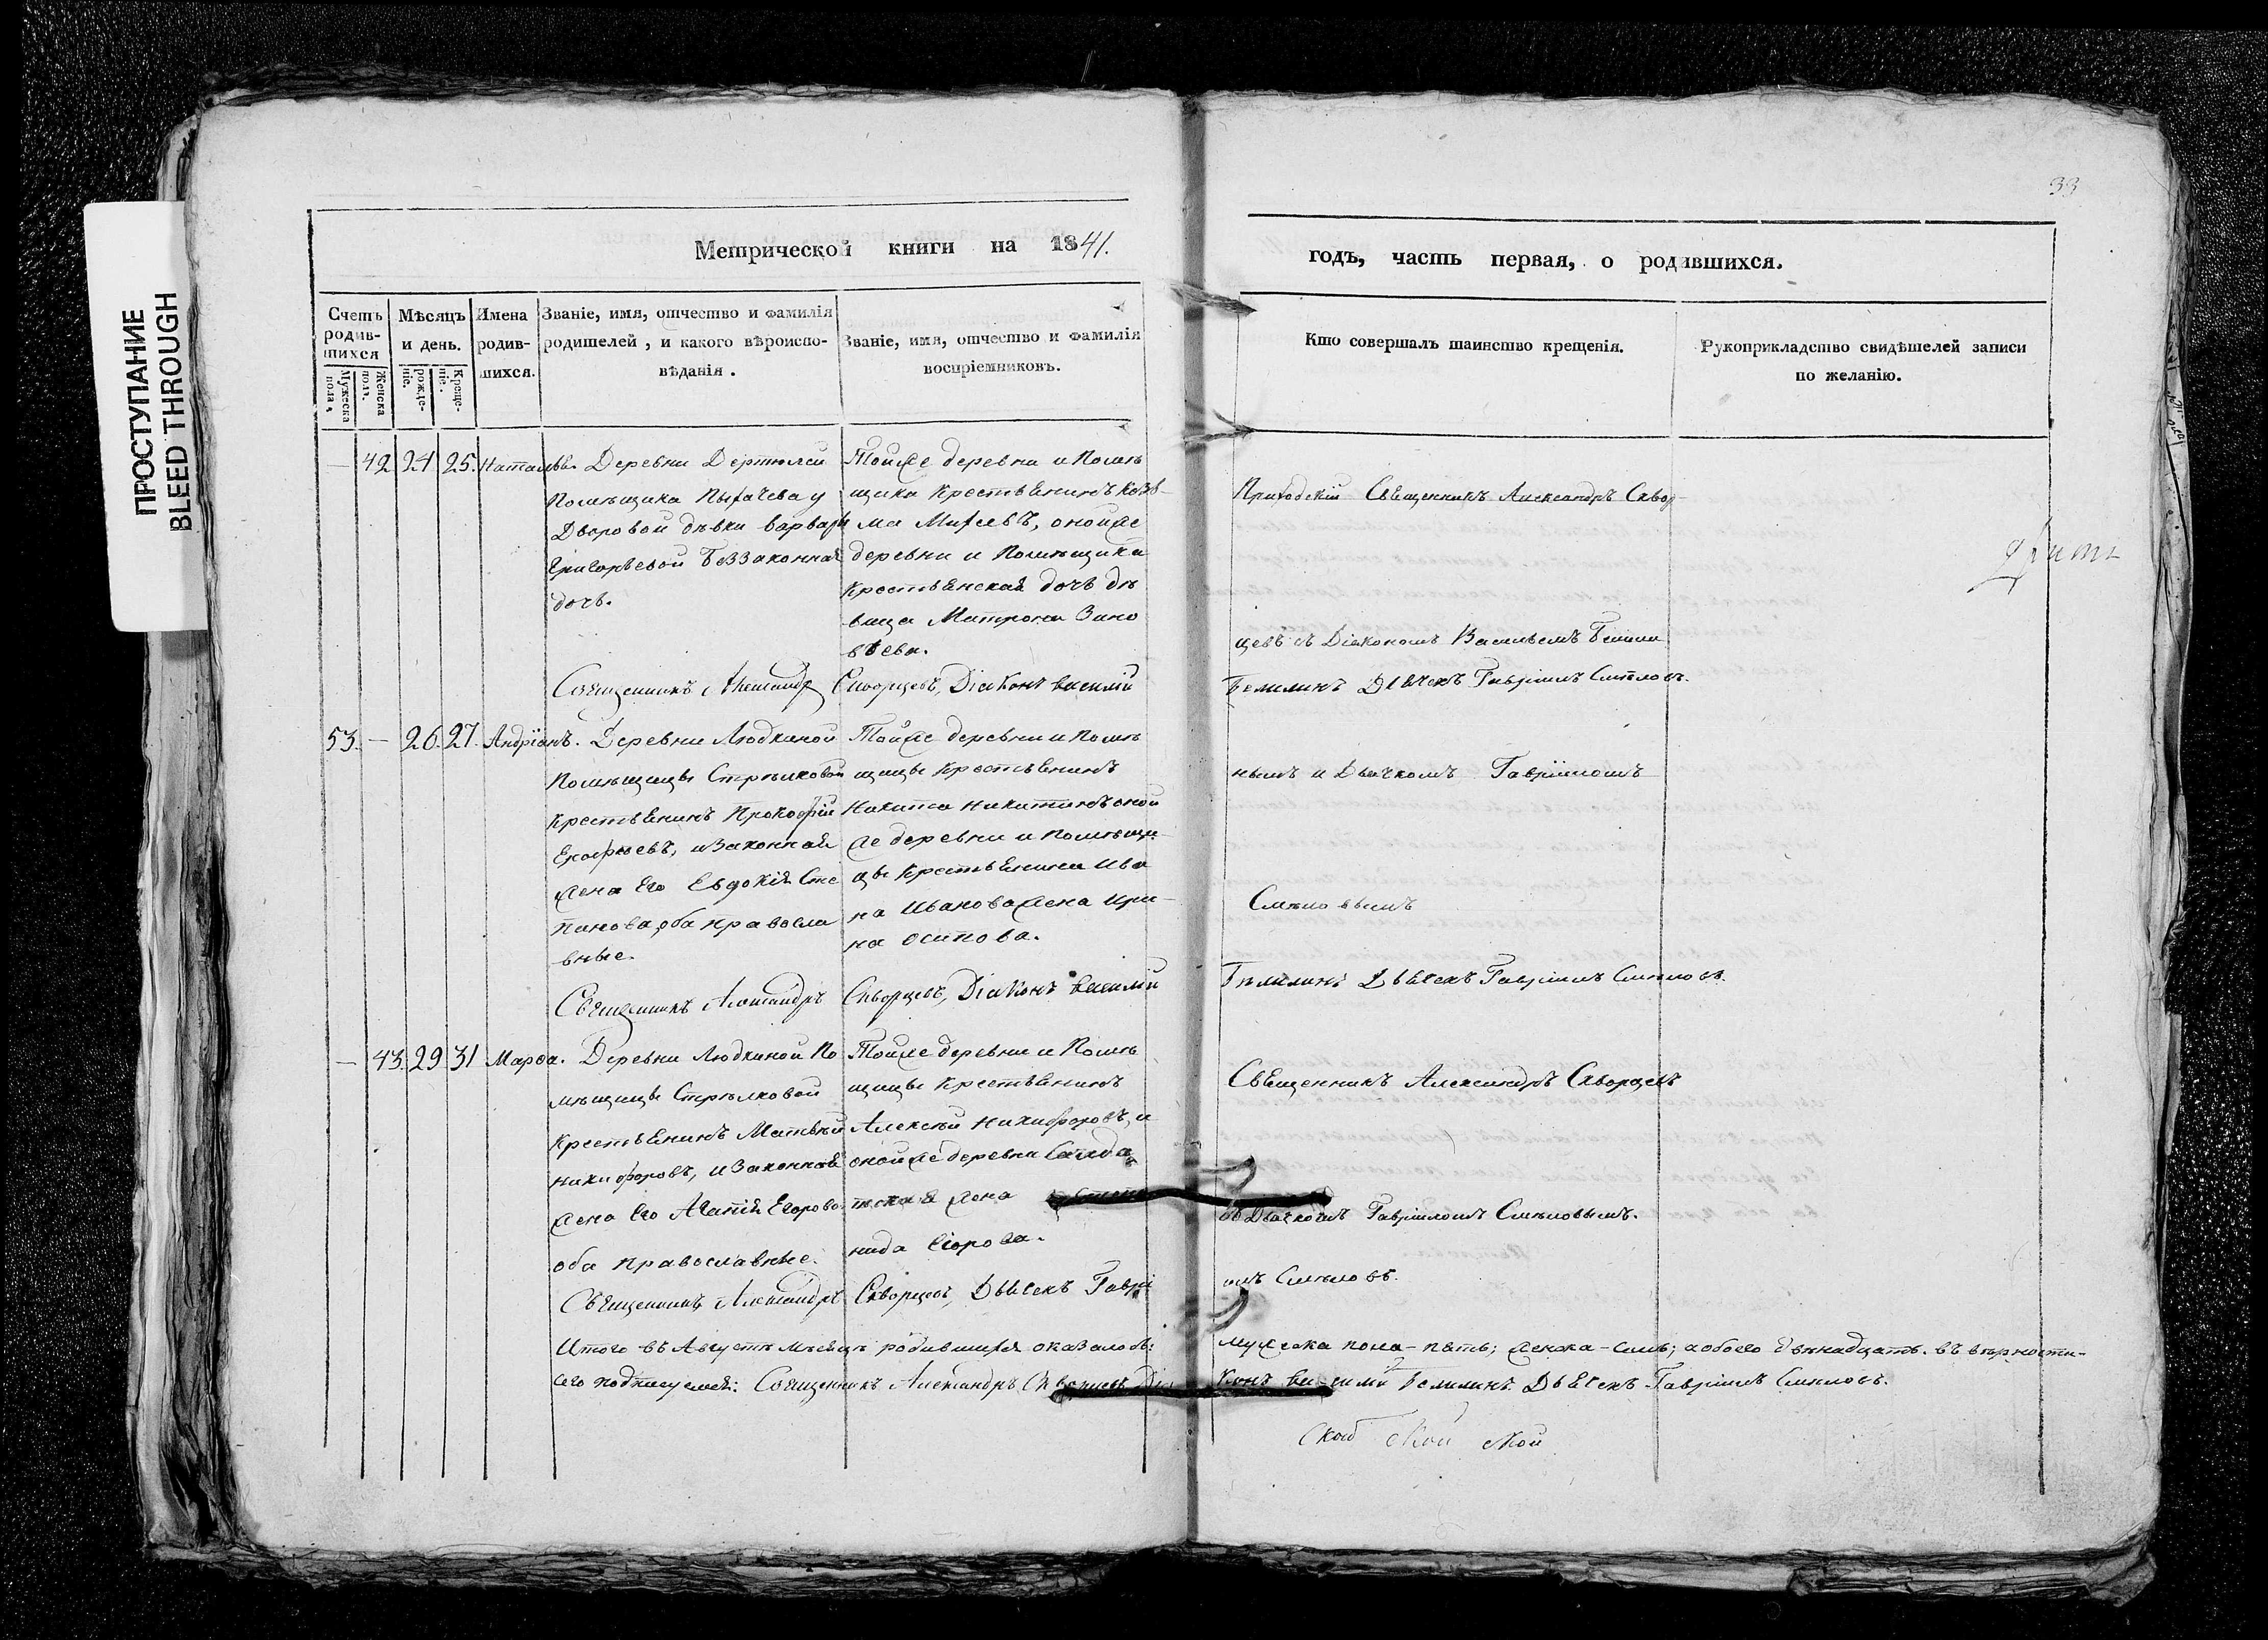 ПРОСТУПАНИЕ
BLEED THROUGH
33
Метрической книги на 1841.
годъ, часть первая, о родившихся.
Счетъ родив-шихся
Мужеска пола,
Женска пола.
Мѣсяцъ и день.
рожде-ніе.
Креще-ніе.
Имена родив-шихся.
Званіе, имя, отчество и фамилія
родителей, и какого вѣроиспо-
вѣданія.
Званіе, имя, отчество и фамилія
воспріемниковъ.
Кто совершалъ таинство крещенія.
Рукоприкладство свидѣтелей записи
по желанію.
— 42 24 25. Наталья. Деревни
Помѣщика Пыхачева у
Дворовой дѣвки Варвары
Григорьевой беззаконная
дочь.
Тойже деревни и Помѣ
щика Крестьянинъ Козь-
ма Михеевъ, онойже
деревни и Помѣщика
Крестьянская дочь дѣ
вица Матрона Зино
вьева.
Приходскій Священникъ Александръ Сквор
цевъ съ Діакономъ Васильемъ
Священникъ Александръ Скворцевъ, Діаконъ Василій
Дьячекъ Гавріилъ Смѣловъ.
53. — 26. 27. Андріанъ. Деревни Людкиной
Помѣщицы Стрѣлковой
Крестьянинъ Прокофій
и законная
жена его Евдокія Сте
панова, оба православ
вные.
Тойже деревни и помѣ
щицы Крестьянинъ
Никита Никитинъ оной
же деревни и помѣщи-
цы Крестьянина Ива
на Иванова жена Ири-
на Осипова.
нымъ и Дьячкомъ Гавріиломъ
Смѣловымъ
Священникъ Александръ Скворцевъ, Діаконъ Василій
Дьячекъ Гавріилъ Смѣловъ.
— 43. 29 31 Марѳа. Деревни Людкиной По
мѣщицы Стрѣлковой
Крестьянинъ Матвѣй
Никифоровъ, и законная
жена его Агапія Егорова
оба православные.
Тойже деревни и Помѣ
щицы Крестьянинъ
Алексѣй Никифоровъ, и
онойже деревни Салда
тская жена
нида Егорова.
Священникъ Александръ Скворцевъ
съ Дьячкомъ Гавріиломъ Смѣловымъ.
Священникъ Александръ Скворцевъ, Дьячекъ Гаврі
илъ Смѣловъ.
Итого въ Августѣ мѣсяцѣ родившихся оказалось: мужеска пола – пять; женска – семь; а обоего двѣнадцать. въ вѣрности
сего подписуемся: Священникъ Александръ Скворцевъ Діа
конъ Василій Дьячекъ Гавріилъ Смѣловъ.